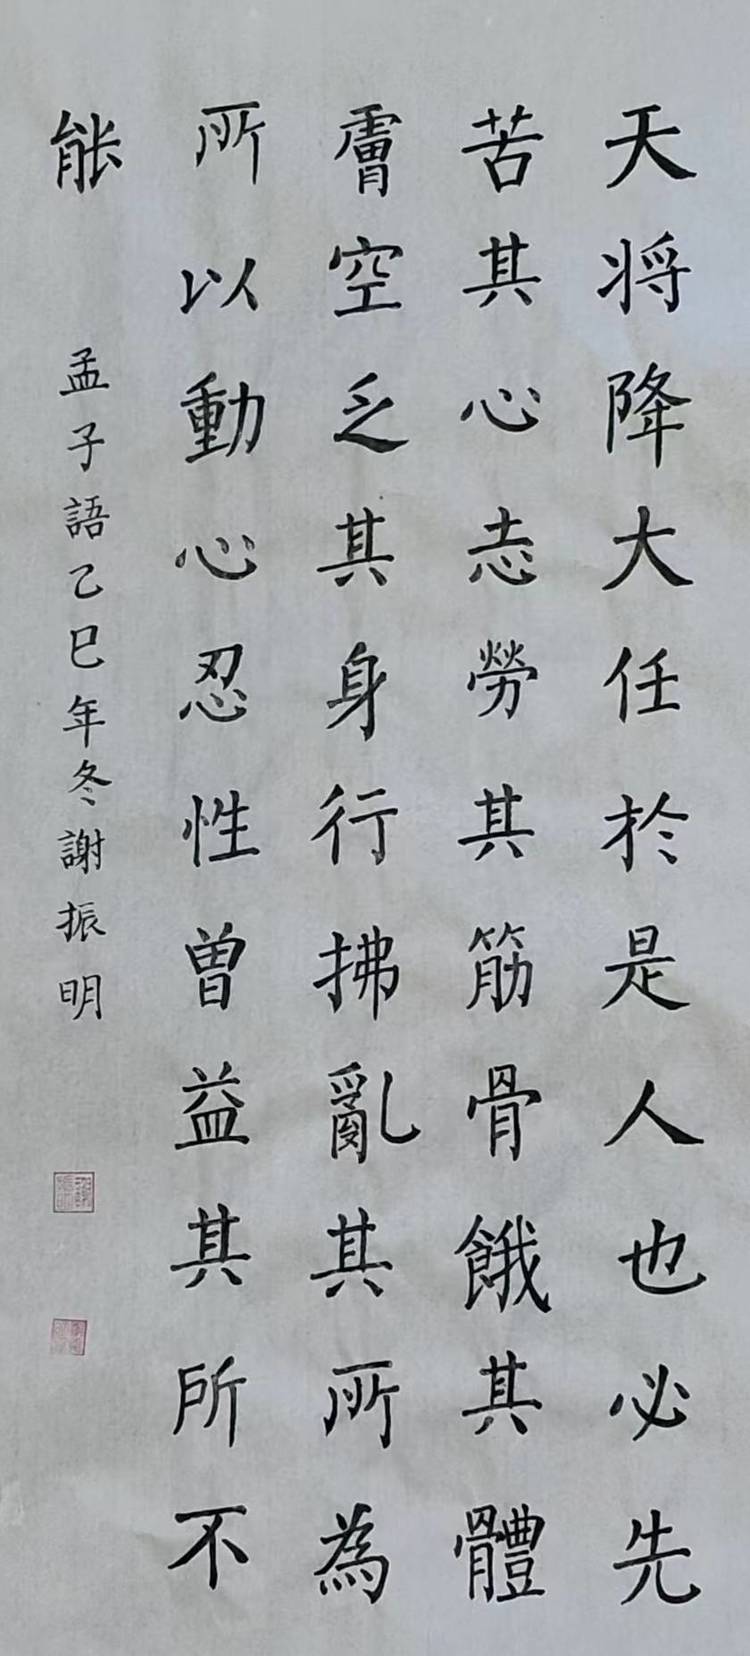 天将降大任於是人也必先
苦其心志勞其筋骨餓其體
膚空乏其身行拂亂其所為
所以動心忍性曽益其所不
能
孟子語乙巳年冬謝振明